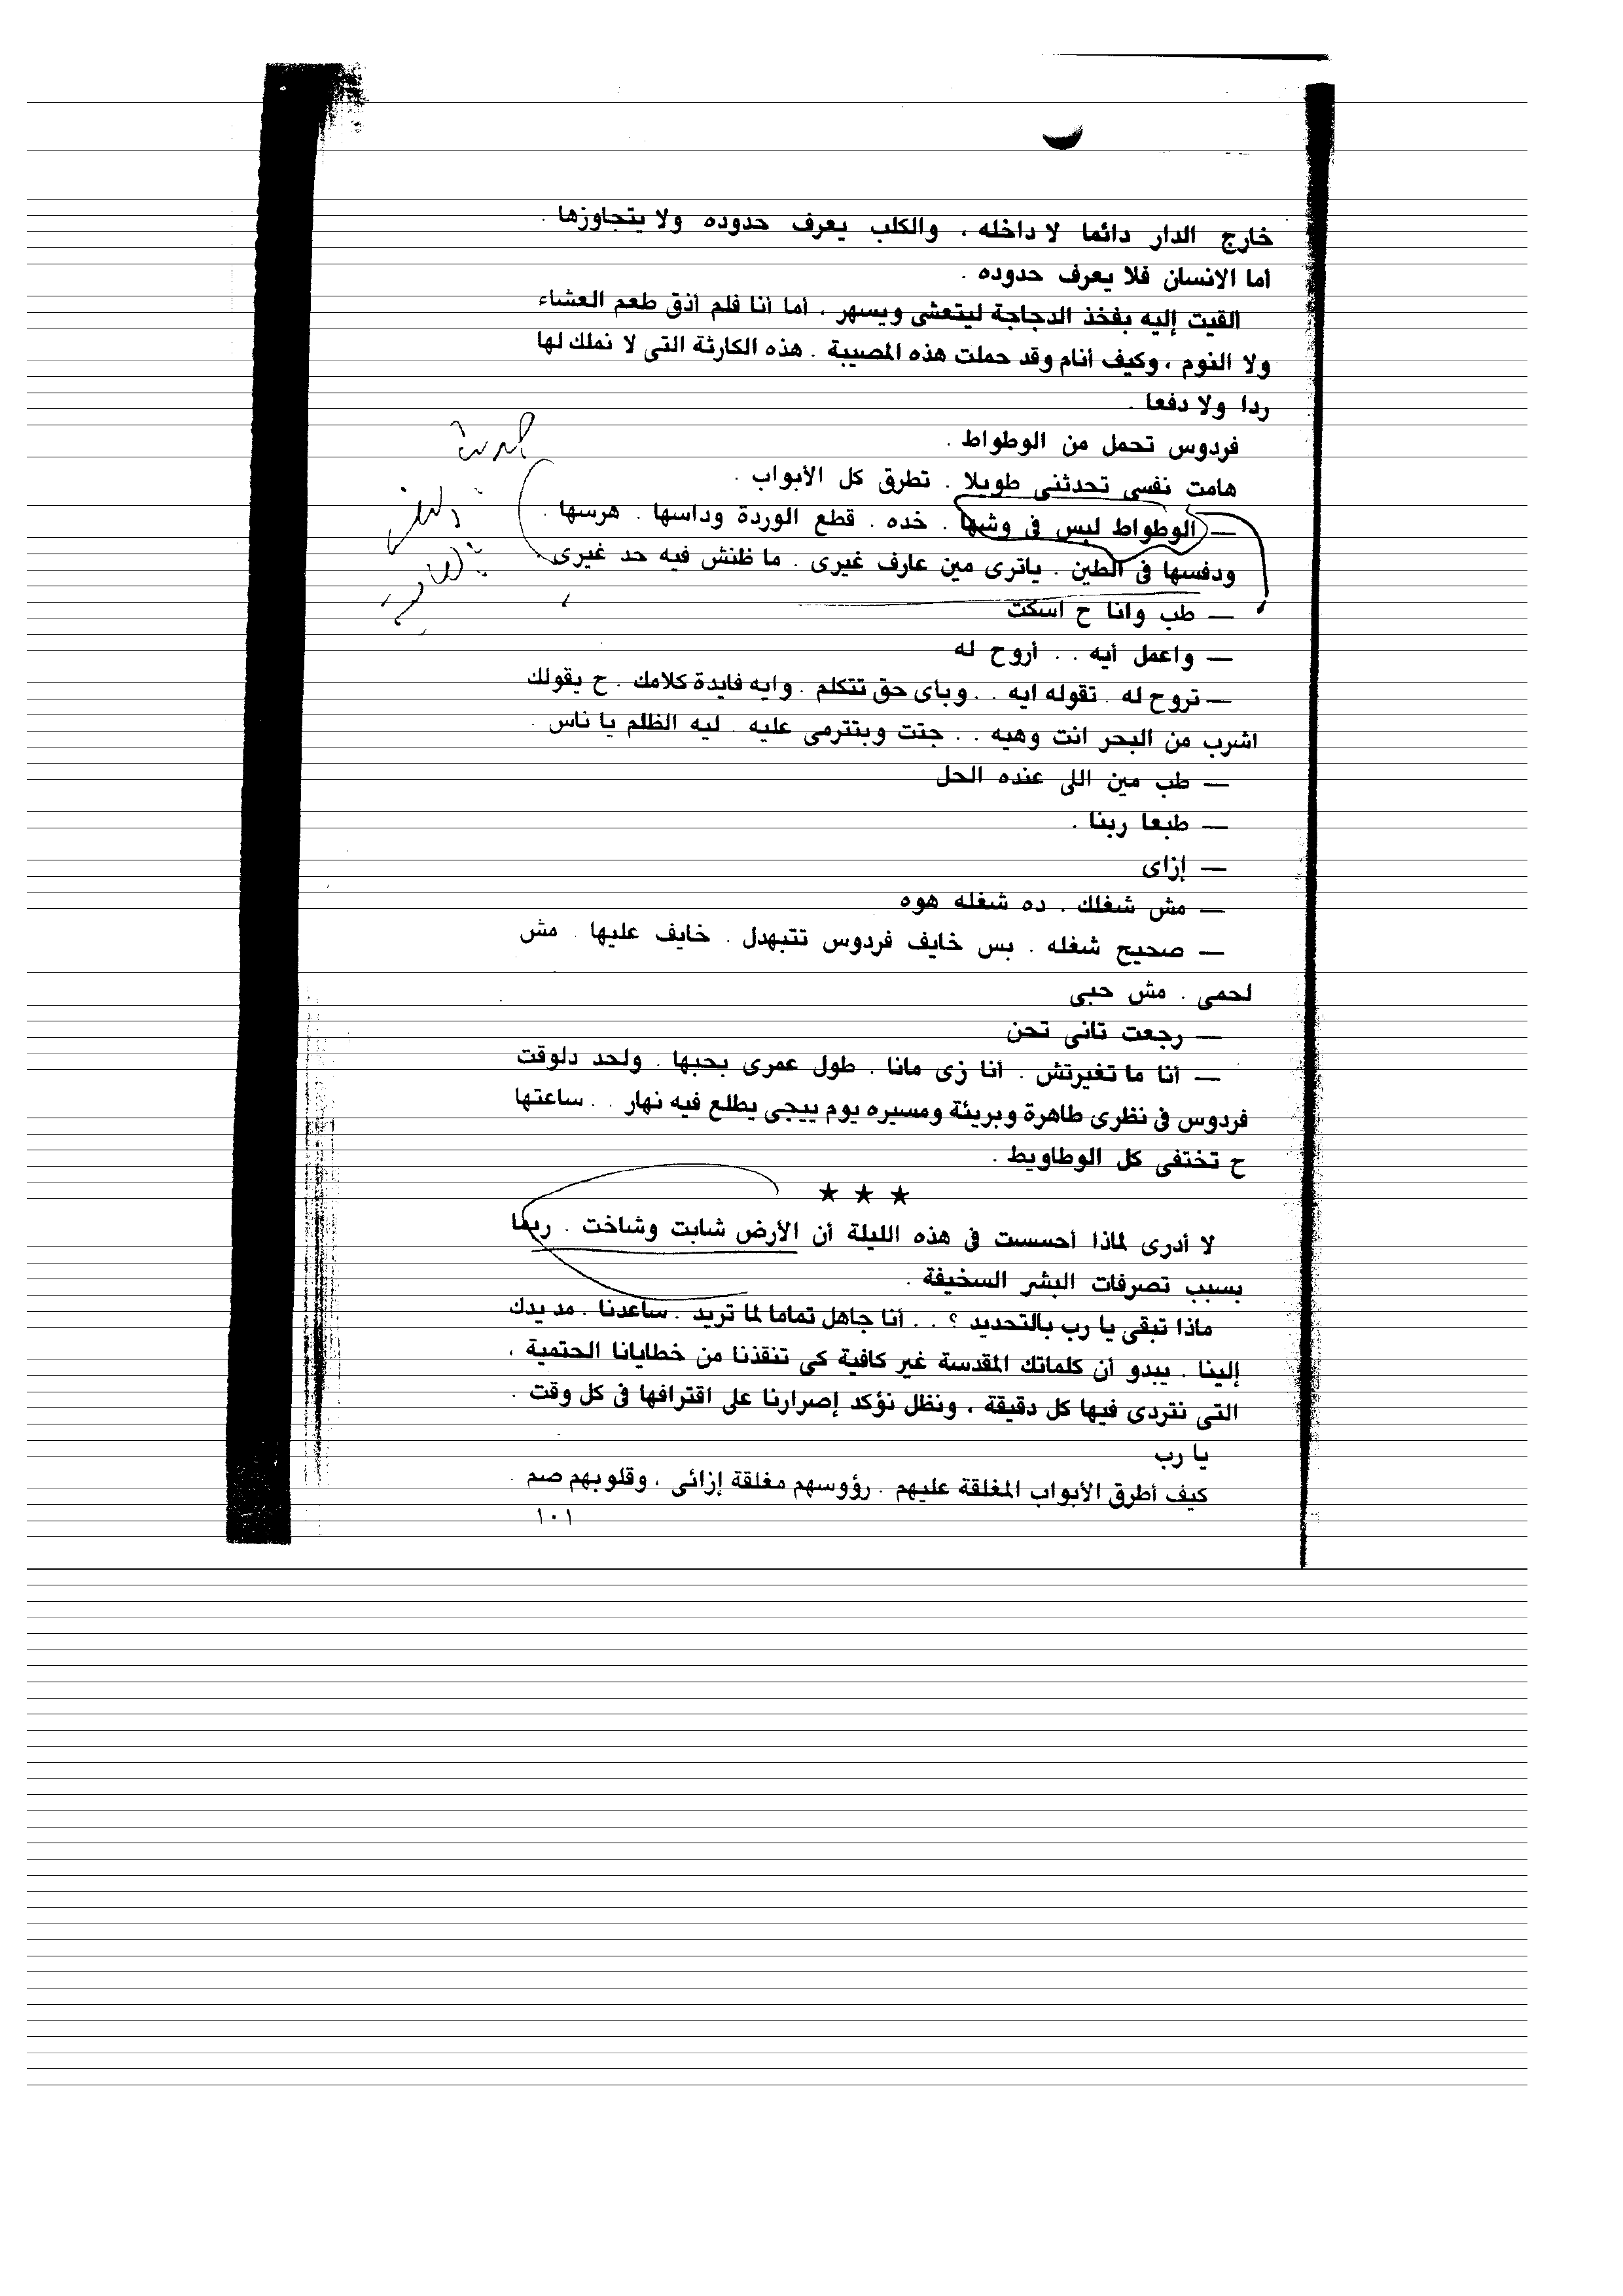 خارج الدار دائما لا داخله ، والكلب يعرف حدوده ولا يتجاوزها .
أما الانسان فلا يعرف حدوده .
القيت إليه بفخذ الدجاجة ليتعشى ويسهر ، أما أنا فلم أذق طعم العشاء
ولا النوم ، وكيف أنام وقد حملت هذه المصيبة . هذه الكارثة التى لا نملك لها
ردا ولا دفعا .
فردوس تحمل من الوطواط .
هامت نفسى تحدثنى طويلا . تطرق كل الأبواب .
— الوطواط لبس فى وشها . خده . قطع الوردة وداسها . هرسها .
ودفسها فى الطين . ياترى مين عارف غيرى . ما ظنش فيه حد غيرى
— طب وانا ح اسكت
— واعمل أيه . . أروح له
— تروح له . تقوله ايه . . وبأى حق تتكلم . وايه فايدة كلامك . ح يقولك
اشرب من البحر انت وهيه . . جتت وبتترمى عليه . ليه الظلم يا ناس .
— طب مين اللى عنده الحل
— طبعا ربنا .
— إزاى
— مش شغلك . ده شغله هوه
— صحيح شغله . بس خايف فردوس تتبهدل . خايف عليها . مش
لحمى . مش حبى
— رجعت تانى تحن
— أنا ما تغيرتش . أنا زى مانا . طول عمرى بحبها . ولحد دلوقت
فردوس فى نظرى طاهرة وبريئة ومسيره يوم ييجى يطلع فيه نهار . . ساعتها
ح تختفى كل الوطاويط .
★ ★ ★
لا أدرى لماذا أحسست فى هذه الليلة أن الأرض شابت وشاخت . ربما
بسبب تصرفات البشر السخيفة .
ماذا تبقى يا رب بالتحديد ؟ . . أنا جاهل تماما لما تريد . ساعدنا . مد يدك
إلينا . يبدو أن كلماتك المقدسة غير كافية كى تنقذنا من خطايانا الحتمية ،
التى نتردى فيها كل دقيقة ، ونظل نؤكد إصرارنا على اقترافها فى كل وقت .
يا رب
كيف أطرق الأبواب المغلقة عليهم . رؤوسهم مغلقة إزائى ، وقلوبهم صم .
١٠١